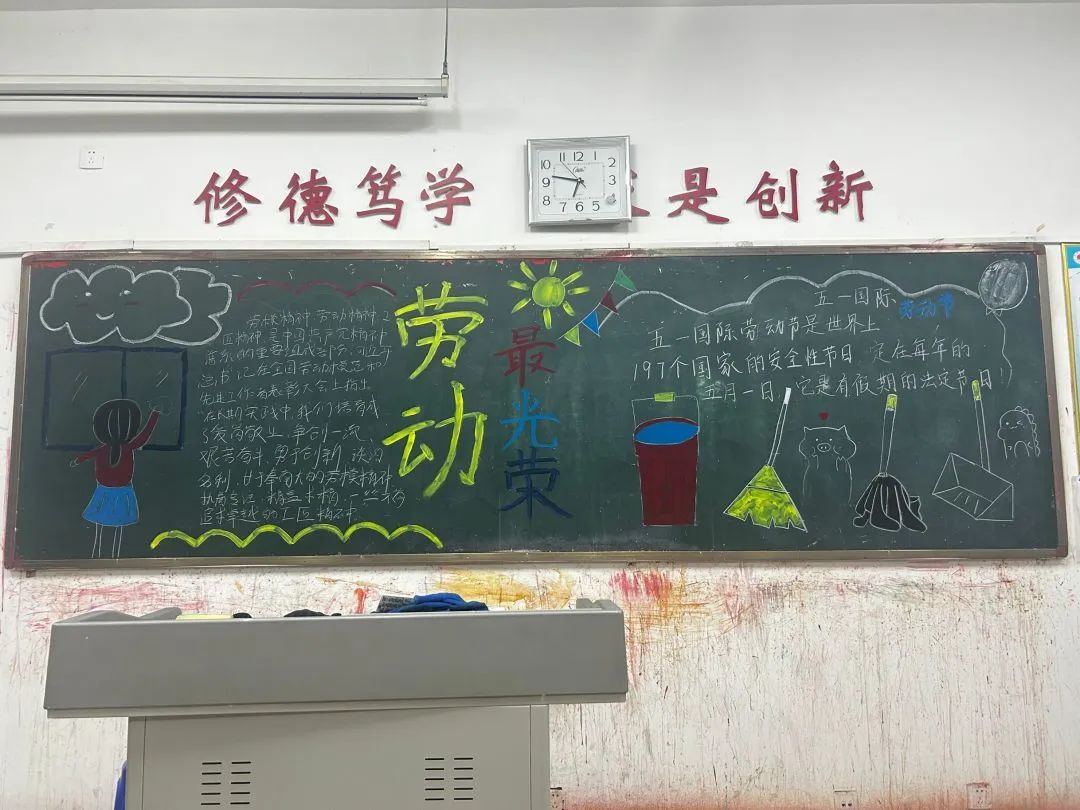 修德笃学 是创新
11 12 1
10 2
9 3
8 4
7 6 5
劳模精神 劳动精神
匠精神 是中国共产党精神
的重要组成部分 习近平
总书记在全国劳动模范和
先进工作者表彰大会上指出
在长期实践中 我们培育
了爱岗敬业、争创一流、
艰苦奋斗、勇于创新、淡泊
名利、甘于奉献的劳模精神
执着专注、精益求精、一丝不苟
追求卓越的工匠精神
劳动
最光荣
五一国际 劳动节
五一国际劳动节是世界上
197个国家的安全性节日 定在每年的
五月一日,它是有假期的法定节日!